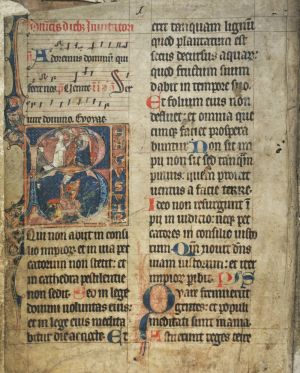 Adoremus dominum qui
fecit nos. Venite. Ser
uite domino. Euouae.
BEATUS VIR
Qui non abiit in consi
lio impiorum et in uia pec
catorum non stetit: et
in cathedra pestilentie
non sedit. Sed in lege
domini uoluntas eius:
et in lege eius medita
bitur die ac nocte. Et
erit tanquam lignum
quod plantatum est
secus decursus aquarum:
quod fructum suum
dabit in tempore suo.
Et folium eius non
defluet: et omnia que
cumque faciet prospera
buntur. Non sic im
pii non sic sed tanquam
puluis: quem proicit
uentus a facie terre.
Ideo non resurgunt im
pii in iudicio: neque pec
catores in consilio iusto
rum. Qm nouit dns
uiam iustorum: et iter
impiorum peribit. Ps
Quare fremuerunt
gentes: et populi
meditati sunt inania.
Astiterunt reges terre